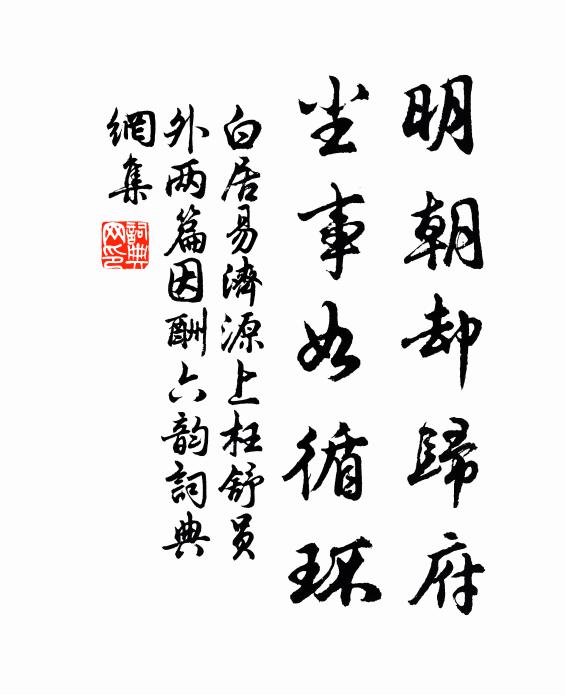 明朝却歸府
塵事如循環
白居易濟源上枉舒員
外两篇因酬六韵詞典
網集
詞典
网印